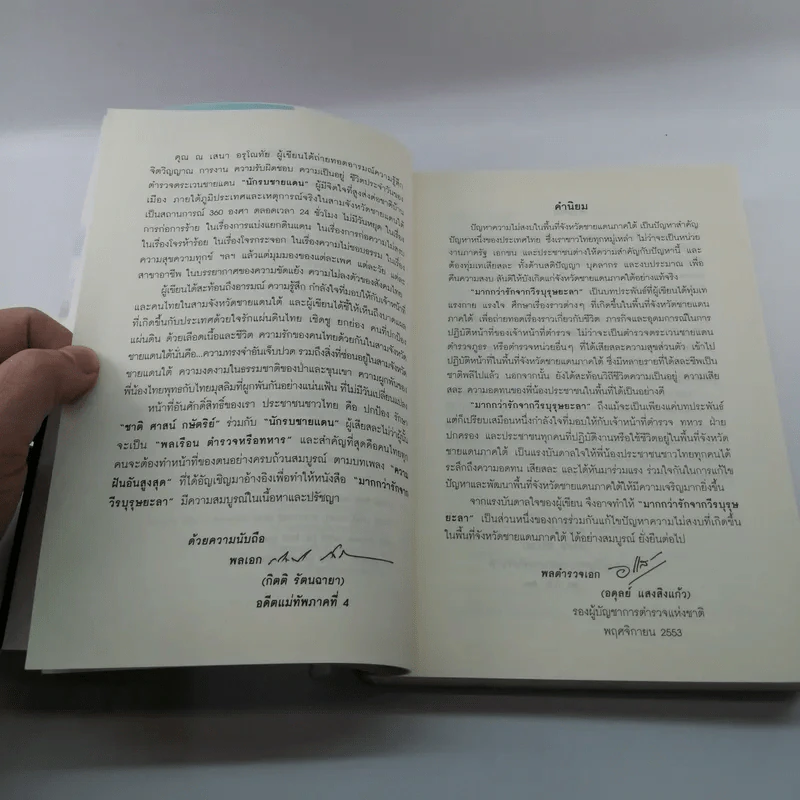 คุณ ณ เสนา อรุโณทัย ผู้เขียนได้ถ่ายทอดอารมณ์ความรู้สึก
จิตวิญญาณ การงาน ความรับผิดชอบ ความเป็นอยู่ ชีวิตประจำวันของ
ตำรวจตระเวนชายแดน "นักรบชายแดน" ผู้มีจิตใจที่สูงส่งต่อชาติบ้าน
เมือง ภายใต้ภูมิประเทศและเหตุการณ์จริงในสามจังหวัดชายแดนใต้
เป็นสถานการณ์ 360 องศา ตลอดเวลา 24 ชั่วโมง ไม่มีวันหยุด ในเรื่อง
การก่อการร้าย ในเรื่องการแบ่งแยกดินแดน ในเรื่องการก่อความไม่สงบ
ในเรื่องโจรห้าร้อย ในเรื่องโจรกระจอก ในเรื่องความไม่ชอบธรรม ในเรื่อง
ความสุขความทุกข์ ฯลฯ แล้วแต่มุมมองของแต่ละเพศ แต่ละวัย แต่ละ
สาขาอาชีพ ในบรรยากาศของความขัดแย้ง ความไม่ลงตัวของสังคมไทย
ผู้เขียนได้สะท้อนถึงอารมณ์ ความรู้สึก กำลังใจที่มอบให้กับเจ้าหน้าที่
และคนไทยในสามจังหวัดชายแดนใต้ และผู้เขียนได้ชี้ให้เห็นถึงบาดแผล
ที่เกิดขึ้นกับประเทศด้วยใจรักแผ่นดินไทย เชิดชู ยกย่อง คนที่ปกป้อง
แผ่นดิน ด้วยเลือดเนื้อและชีวิต ความรักของคนไทยด้วยกันในสามจังหวัด
ชายแดนใต้นั่นคือ...ความทรงจำอันเจ็บปวด รวมถึงสิ่งที่ซ่อนอยู่ในสามจังหวัด
ชายแดนใต้ ความงดงามในธรรมชาติของป่าและขุนเขา ความผูกพันของ
พี่น้องไทยพุทธกับไทยมุสลิมที่ผูกพันกันอย่างแน่นแฟ้น ที่ไม่มีวันเปลี่ยนแปลง
หน้าที่อันศักดิ์สิทธิ์ของเรา ประชาชนชาวไทย คือ ปกป้อง รักษา
"ชาติ ศาสน์ กษัตริย์" ร่วมกับ "นักรบชายแดน" ผู้เสียสละไม่ว่าผู้นั้น
จะเป็น "พลเรือน ตำรวจหรือทหาร" และสำคัญที่สุดคือคนไทยทุก
คนจะต้องทำหน้าที่ของตนอย่างครบถ้วนสมบูรณ์ ตามบทเพลง "ความ
ฝันอันสูงสุด" ที่ได้อัญเชิญมาอ้างอิงเพื่อทำให้หนังสือ "มากกว่ารักจาก
วีรบุรุษยะลา" มีความสมบูรณ์ในเนื้อหาและปรัชญา
ด้วยความนับถือ
พลเอก
(กิตติ รัตนฉายา)
อดีตแม่ทัพภาคที่ 4
คำนิยม
ปัญหาความไม่สงบในพื้นที่จังหวัดชายแดนภาคใต้ เป็นปัญหาสำคัญ
ปัญหาหนึ่งของประเทศไทย ซึ่งเราชาวไทยทุกหมู่เหล่า ไม่ว่าจะเป็นหน่วย
งานภาครัฐ เอกชน และประชาชนต่างให้ความสำคัญกับปัญหานี้ และ
ต้องทุ่มเทเสียสละ ทั้งด้านสติปัญญา บุคลากร และงบประมาณ เพื่อ
คืนความสงบ สันติให้บังเกิดแก่จังหวัดชายแดนภาคใต้อย่างแท้จริง
"มากกว่ารักจากวีรบุรุษยะลา" เป็นบทประพันธ์ที่ผู้เขียนได้ทุ่มเท
แรงกาย แรงใจ ศึกษาเรื่องราวต่างๆ ที่เกิดขึ้นในพื้นที่จังหวัดชายแดน
ภาคใต้ เพื่อถ่ายทอดเรื่องราวเกี่ยวกับชีวิต ภารกิจและอุดมการณ์ในการ
ปฏิบัติหน้าที่ของเจ้าหน้าที่ตำรวจ ไม่ว่าจะเป็นตำรวจตระเวนชายแดน
ตำรวจภูธร หรือตำรวจหน่วยอื่นๆ ที่ได้เสียสละความสุขส่วนตัว เข้าไป
ปฏิบัติหน้าที่ในพื้นที่จังหวัดชายแดนภาคใต้ ซึ่งมีหลายรายที่ได้สละชีพเป็น
ชาติพลีไปแล้ว นอกจากนั้น ยังได้สะท้อนวิถีชีวิตความเป็นอยู่ ความเสีย
สละ ความอดทนของพี่น้องประชาชนในพื้นที่ได้เป็นอย่างดี
"มากกว่ารักจากวีรบุรุษยะลา" ถึงแม้จะเป็นเพียงแค่บทประพันธ์
แต่ก็เปรียบเสมือนหนึ่งกำลังใจที่มอบให้กับเจ้าหน้าที่ตำรวจ ทหาร ฝ่าย
ปกครอง และประชาชนทุกคนที่ปฏิบัติงานหรือใช้ชีวิตอยู่ในพื้นที่จังหวัด
ชายแดนภาคใต้ เป็นแรงบันดาลใจให้พี่น้องประชาชนชาวไทยทุกคนได้
ระลึกถึงความอดทน เสียสละ และได้หันมาร่วมแรง ร่วมใจกันในการแก้ไข
ปัญหาและพัฒนาพื้นที่จังหวัดชายแดนภาคใต้ให้มีความเจริญมากยิ่งขึ้น
จากแรงบันดาลใจของผู้เขียน จึงอาจทำให้ "มากกว่ารักจากวีรบุรุษ
ยะลา" เป็นส่วนหนึ่งของการร่วมกันแก้ไขปัญหาความไม่สงบที่เกิดขึ้น
ในพื้นที่จังหวัดชายแดนภาคใต้ ได้อย่างสมบูรณ์ ยั่งยืนต่อไป
พลตำรวจเอก
(อดุลย์ แสงสิงแก้ว)
รองผู้บัญชาการตำรวจแห่งชาติ
พฤศจิกายน 2553